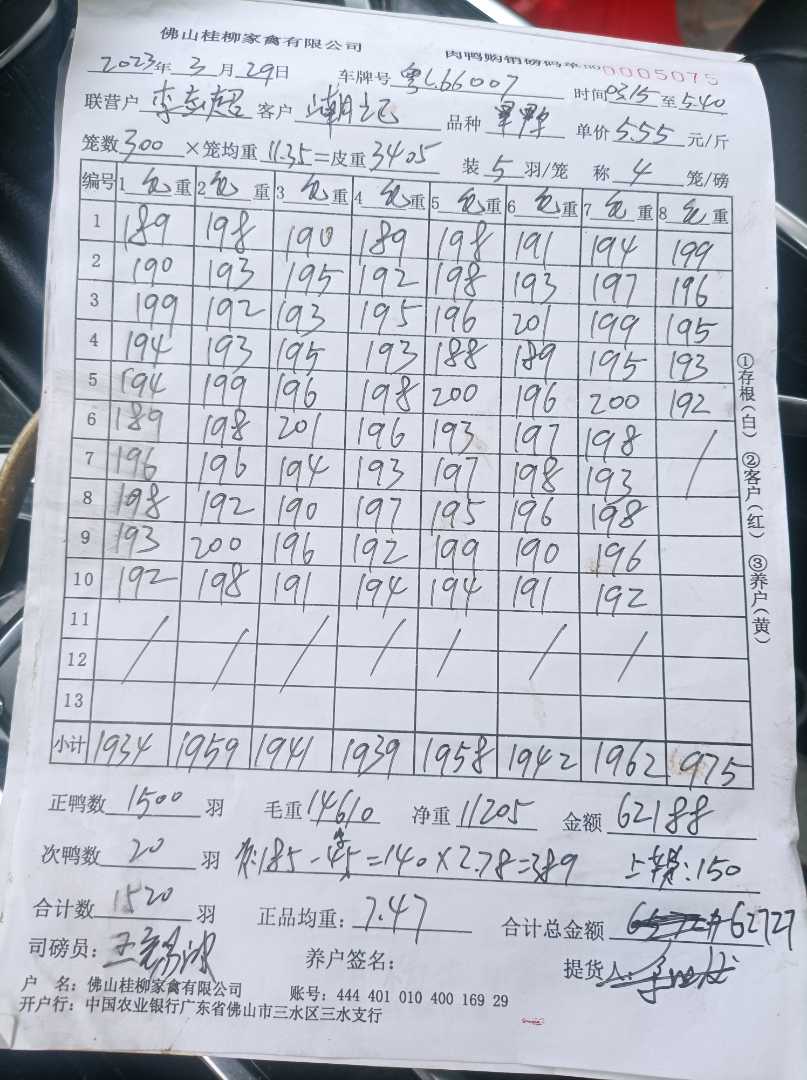 佛山桂柳家禽有限公司 肉鸭购销磅码单 0005075
2023年3月29日 车牌号 粤L66007 时间 03.15至5.40
联营户 客户 潮 品种 单价5.55元/斤
笼数300×笼均重11.35=皮重3405 装5羽/笼 称4笼/磅
编号 1 毛重 2 毛重 3 毛重 4 毛重 5 毛重 6 毛重 7 毛重 8 毛重
1 189 198 190 189 198 191 194 199
2 190 193 195 192 198 193 197 196
3 199 192 193 195 196 201 199 195
4 194 193 195 193 188 189 195 193
5 194 199 196 198 200 196 200 192
6 189 198 201 196 193 197 198 /
7 196 196 194 193 197 198 193
8 198 192 190 197 195 196 198
9 193 200 196 192 199 190 196
10 192 198 191 194 194 191 192
11 / / / / / / /
12
13
小计 1934 1959 1941 1939 1958 1942 1962 975
正鸭数1500羽 毛重14610 净重11205 金额62188
次鸭数20羽 185-45=140×2.78=389 150
合计数1520羽 正品均重:7.47 合计总金额 62727
司磅员: 养户签名: 提货人:
户 名:佛山桂柳家禽有限公司 账号:444 401 010 400 169 29
开户行:中国农业银行广东省佛山市三水区三水支行
①存根(白) ②客户(红) ③养户(黄)